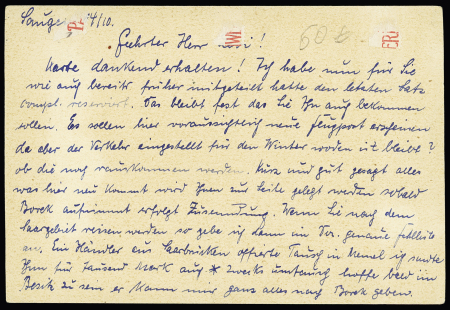 14/10.
Geehrter Herr !
Karte dankend erhalten ! Ich habe nun für Sie
wie auch bereits früher mitgeteilt hatte den letzten Satz
compl. reserviert. Das bleibt fest das Sie Ihn auch bekommen
sollen. Es sollen hier voraussichtlich neue Flugpost erscheinen
da aber der Verkehr eingestellt für den Winter worden ist bleibt ?
ob die noch rauskommen werden. Kurz und gut gesagt alles
was hier neu kommt wird Ihnen zur Seite gelegt werden sobald
aufnimmt erfolgt Zusendung. Wenn Sie nach dem
Saargebiet reisen werden so gebe ich Ihnen im genaue
an. Ein Händler aus Saarbrücken offerte Tausch in Memel ich sandte
Ihm für Tausend Mark auch zwecks umtausch hoffe bald im
Besitz zu sein er kann mir ganz alles nach geben.